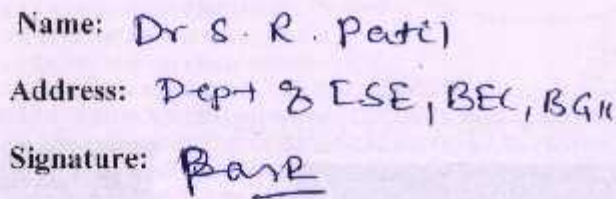 Name: Dr S. R. Patil
Address: Dept of ISE, BEC, BGK
Signature: